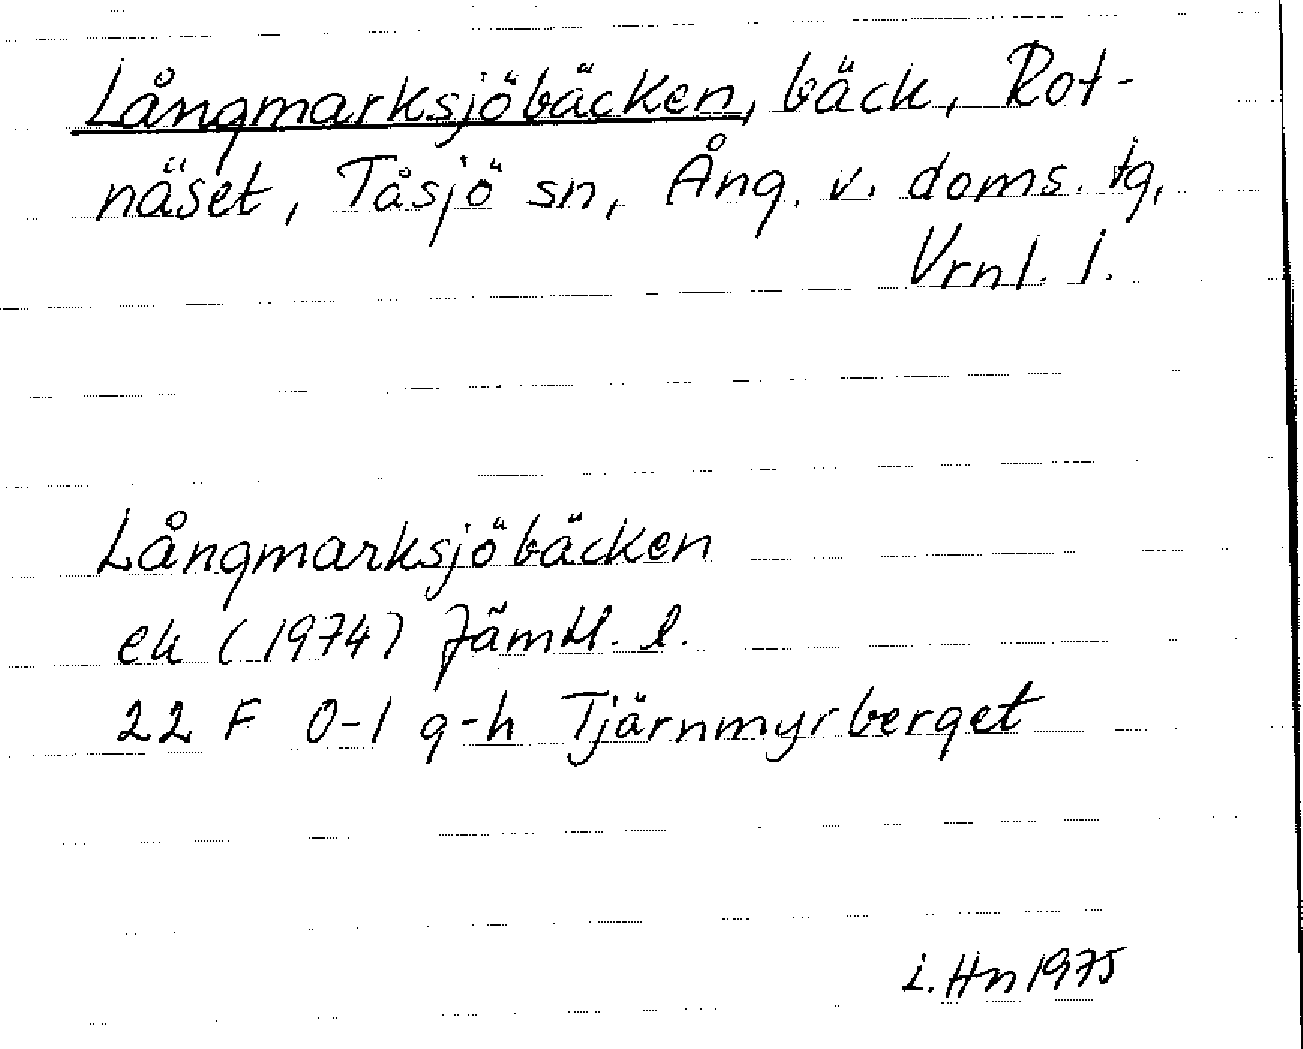 Långmarksjöbäcken, bäck, Rot-
näset, Tåsjö sn, Ång. v. doms. tg,
Vrnl. l.
Långmarksjöbäcken
ek (1974) Jämtl. l.
22 F 0-1 g-h Tjärnmyrberget
i. Hn 1975